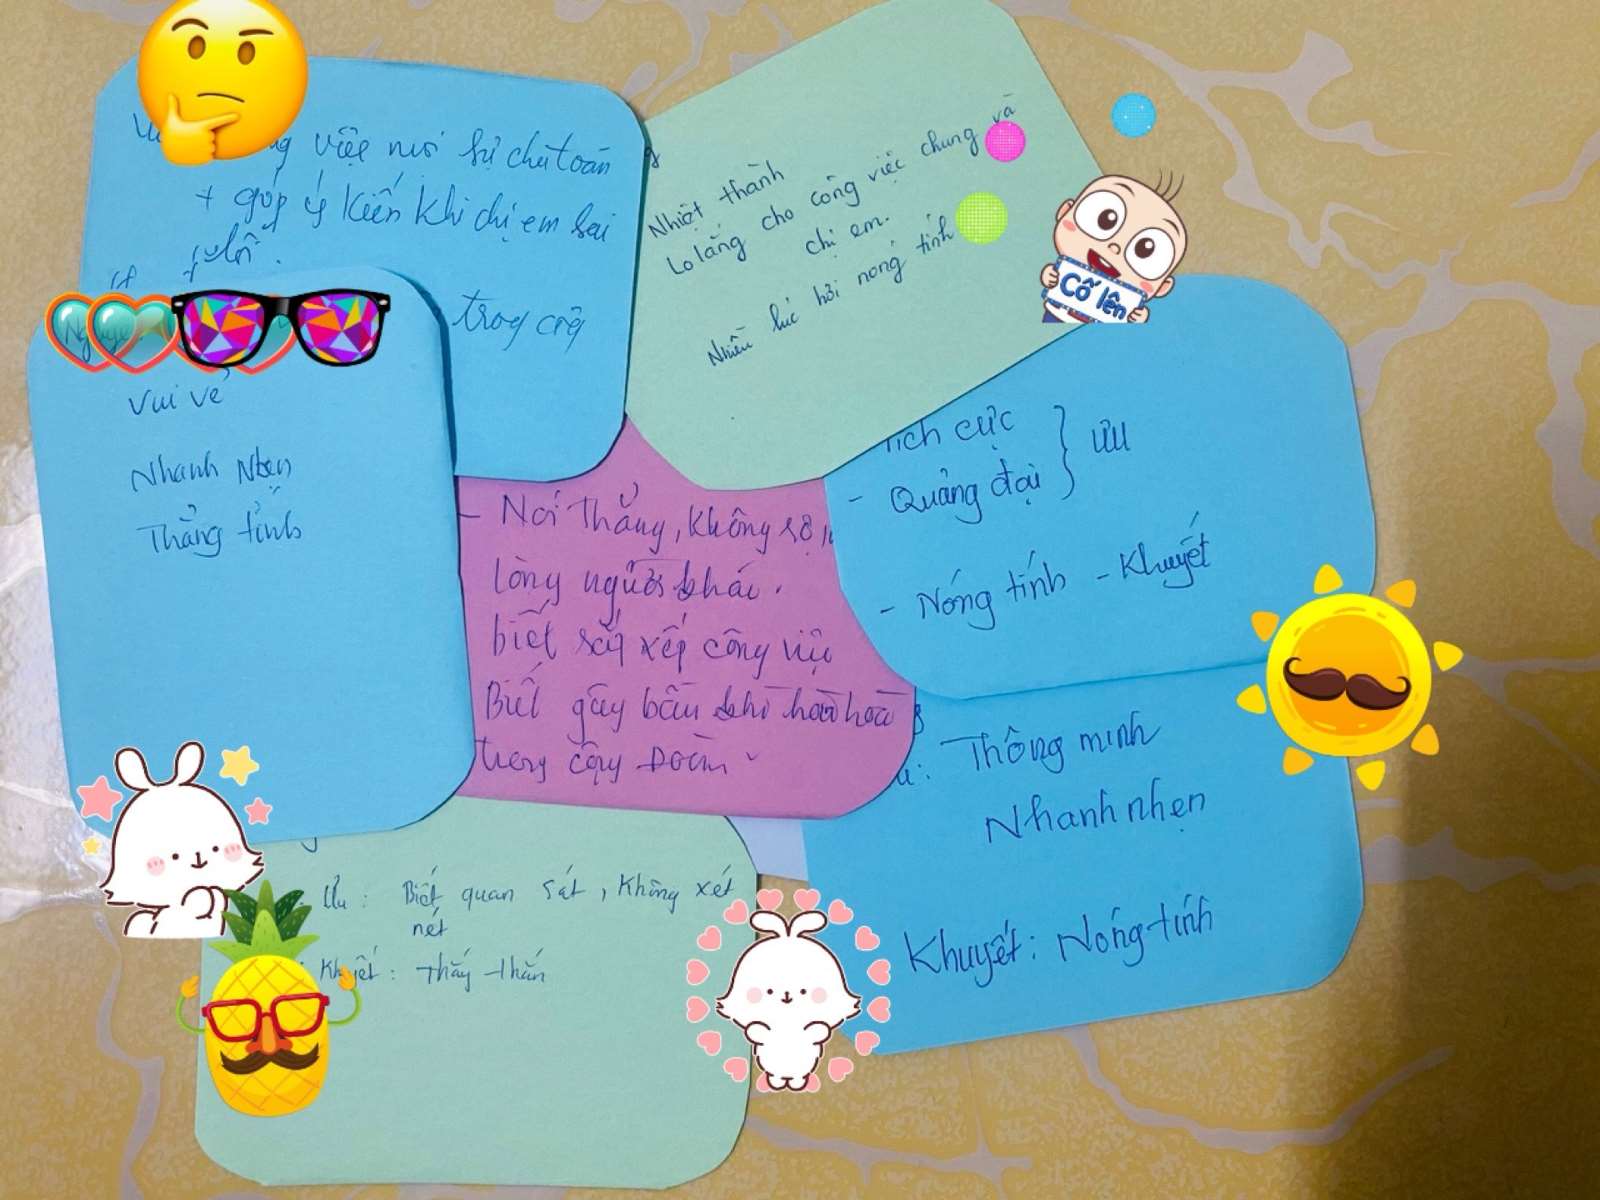 việc mọi sự chu toàn
+ góp ý kiến khi chị em sai
trong
Nhiệt thành
Lo lắng cho công việc chung và
chị em.
Nhiều lúc hơi nóng tính
Cố lên
Vui vẻ
Nhanh Nhẹn
Thẳng tính
- Nói Thẳng, không sợ
lòng người khác.
biết sắp xếp công việc
Biết gây bầu khí hài hoà
trong cộng Đoàn.
Tích cực
- Quảng đại } ƯU
- Nóng tính - Khuyết
Thông minh
Nhanh nhẹn
Khuyết: Nóng tính
Ưu: Biết quan sát, không xét
nét
Khuyết: Thẳng thắn